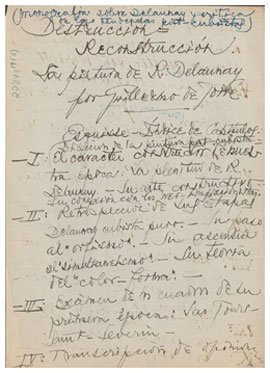 (Monografía sobre Delaunay y crítica
de las tendencias post-cubistas)
Destrucción =
Reconstrucción
La pintura de R. Delaunay
por Guillermo de Torre.
Esquisse - Índice de Capítulos
de la pintura post-cubista
I: El carácter constructor de nues-
tra época: La plenitud de R.
Delaunay - Su arte constructivo
Su conexión con los
II: Retrospección de sus etapas
Delaunay cubista puro. - Su paso
al "orfismo" - Su ascensión
al "simultaneísmo" - Su teoría
del "color-forma" -
III: Examen de un cuadro de su
primera época: Las Tours
Saint-Severin -
IV: Transcripción de